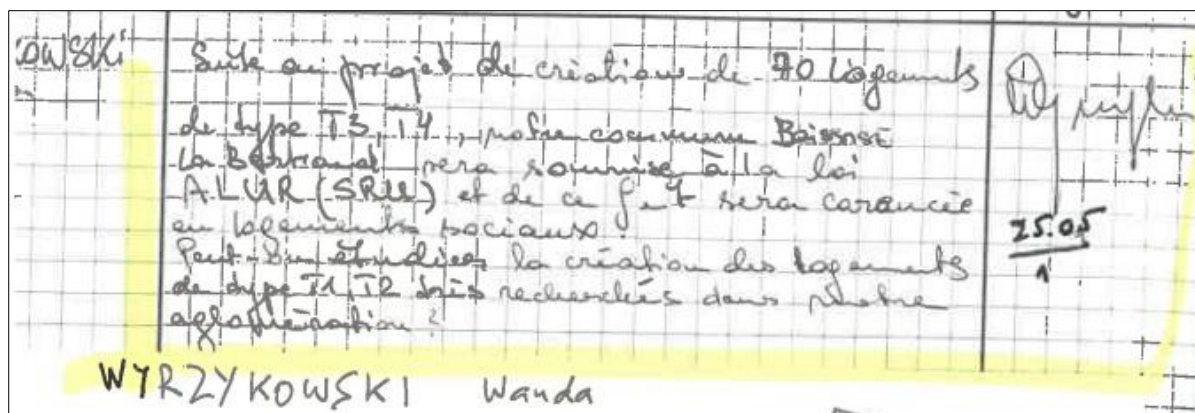 OWSKI
Suite au projet de création de 70 logements
de type T3, T4, notre commune Boissise
la Bertrand sera soumise à la loi
ALUR (SRU) et de ce fait sera carancée
en logements sociaux.
Peut-on étudier la création des logements
de type T1, T2 très recherchés dans notre
aglomération ?
25.05
1
WYRZYKOWSKI Wanda